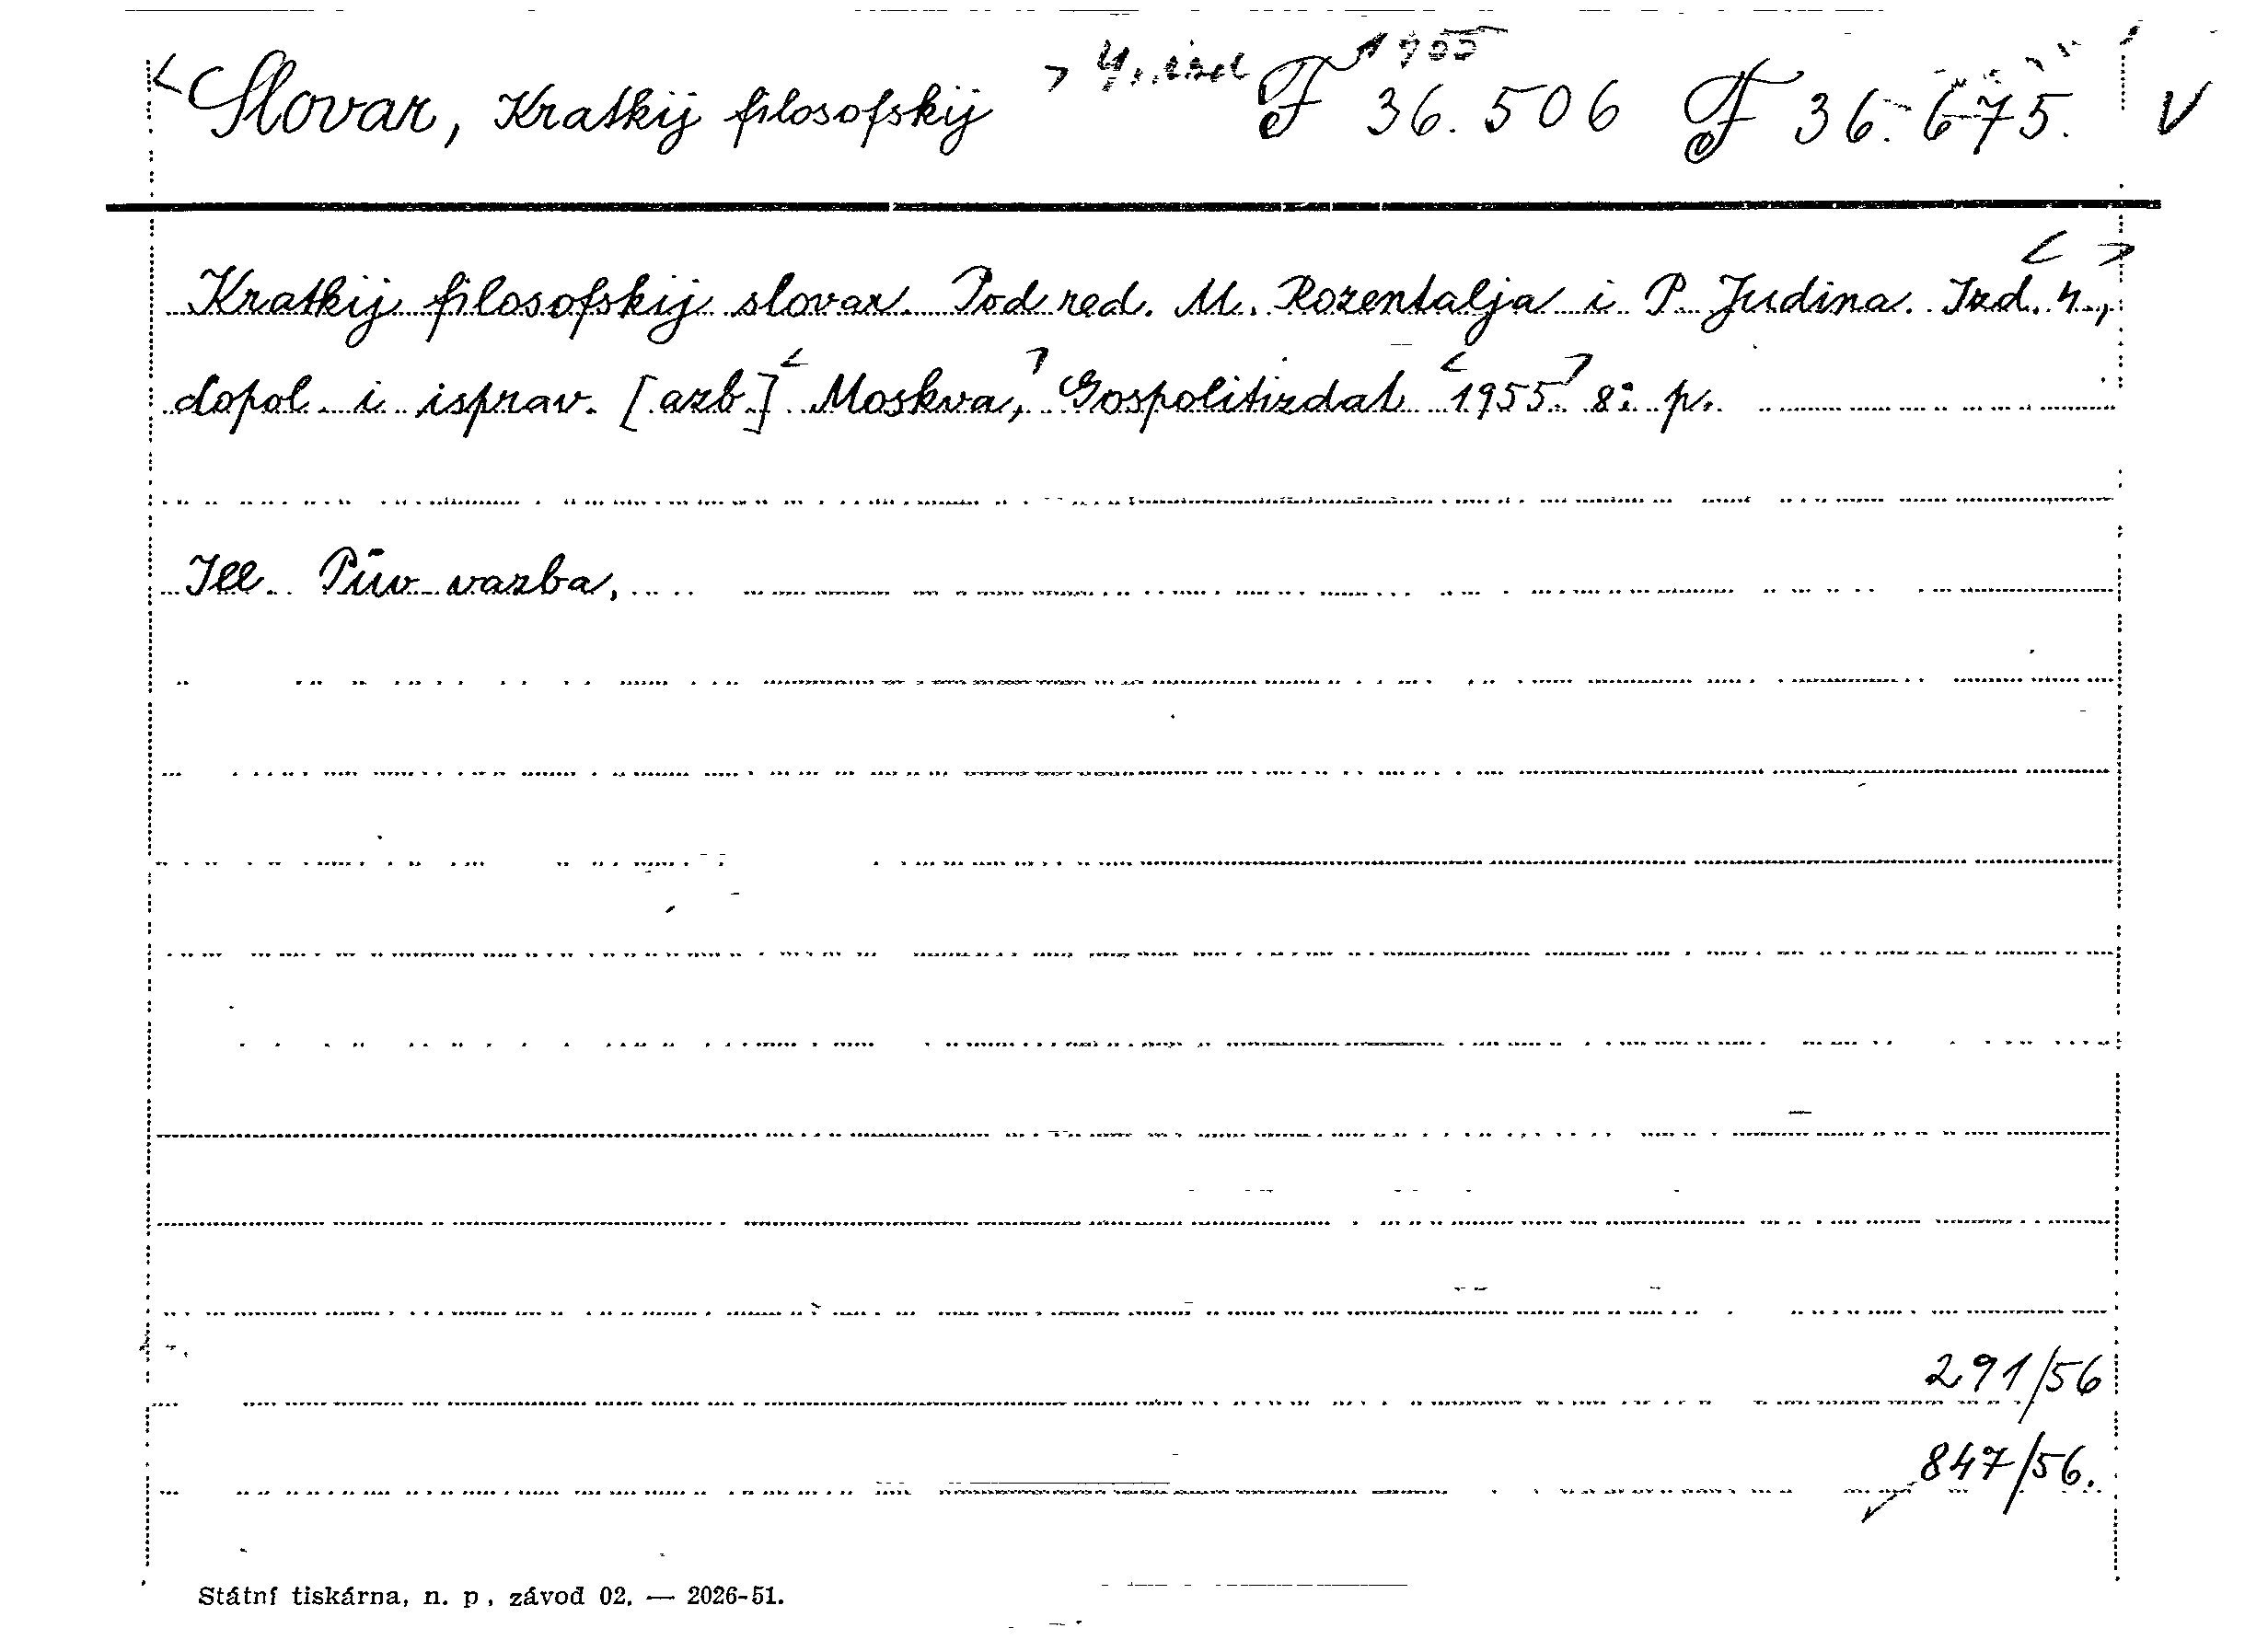 <Slovar, Kratkij filosofskij > 4. izd 1955 F 36.506 F 36.675. V
Kratkij filosofskij slovar. Pod red. M. Rozentalja i P. Judina. Izd. <4.>,
dopol. i isprav. [azb.] <Moskva,> Gospolitizdat <1955> 8° p.
Ill. Pův vazba.
291/56
847/56.
Státní tiskárna, n. p., závod 02. — 2026-51.